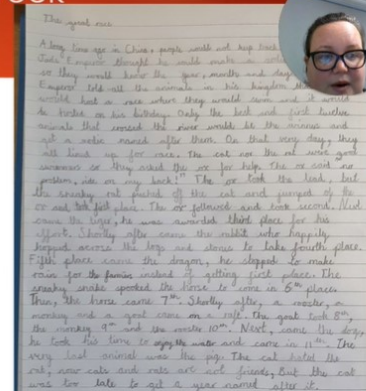 The great race
A long time ago in China, people would not keep track
Jade Emperor thought he could make a
so they would know the year, months and day
Emperor told all the animals in his kingdom
would host a race where they would swim and it would
be hosted on his birthday. Only the best and first twelve
animals that crossed the river would be the winners and
get a zodiac named after them. On that very day, they
all lined up for race. The cat nor the rat were good
swimmers so they asked the ox for help. The ox said no
problem, ride on my back!" The ox took the lead, but
the sneaky rat pushed off the cat and jumped of the
ox and took first place. The ox followed and took second. Next
came the tiger, he was awarded third place for his
effort. Shortly after came the rabbit who happily
hopped across the logs and stones to take fourth place.
Fifth place came the dragon, he stopped to make
rain for the farmers instead of getting first place. The
sneaky snake spooked the horse to come in 6th place.
Then, the horse came 7th. Shortly after, a rooster, a
monkey and a goat came on a raft. The goat took 8th,
the monkey 9th and the rooster 10th. Next, came the dog,
he took his time to enjoy the water and came in 11th. The
very last animal was the pig. The cat hated the
rat, now cats and rats are not friends, But the cat
was too late to get a year named after it.